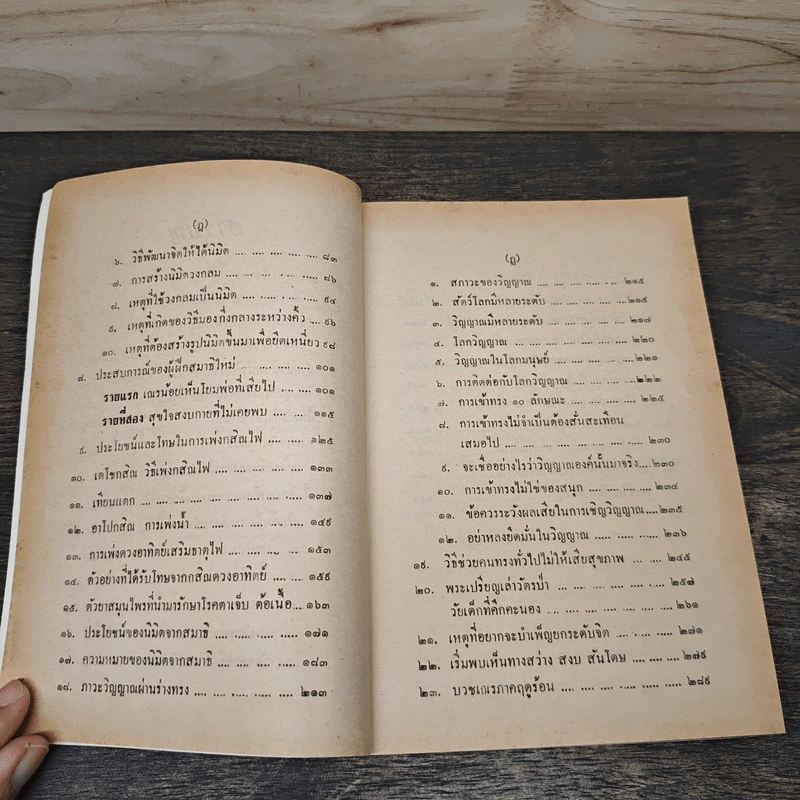 (ฎ)
๖. วิธีพัฒนาจิตให้ได้นิมิต .... .... .... .... .... ๘๓
๗. การสร้างนิมิตวงกลม .... .... .... .... .... ๘๖
๘. เหตุที่ใช้วงกลมเป็นนิมิต .... .... .... .... ๙๔
๙. เหตุที่เกิดของวิธีมองกึ่งกลางระหว่างคิ้ว .... ๙๖
๑๐. เหตุที่ต้องสร้างรูปนิมิตขึ้นมาเพื่อยึดเหนี่ยว ๙๘
๘. ประสบการณ์ของผู้ฝึกสมาธิใหม่ .... .... .... .... ๑๐๑
รายแรก เณรน้อยเห็นโยมพ่อที่เสียไป .... .... ๑๐๑
รายที่สอง สุขใจสงบกายที่ไม่เคยพบ .... .... ๑๑๕
๙. ประโยชน์และโทษในการเพ่งกสิณไฟ .... .... ๑๒๕
๑๐. เตโชกสิณ วิธีเพ่งกสิณไฟ .... .... .... .... ๑๓๓
๑๑. เทียนแตก .... .... .... .... .... .... .... ๑๓๗
๑๒. อาโปกสิณ การเพ่งน้ำ .... .... .... .... .... ๑๔๙
๑๓. การเพ่งดวงอาทิตย์เสริมธาตุไฟ .... .... .... .... ๑๕๓
๑๔. ตัวอย่างที่ได้รับโทษจากกสิณดวงอาทิตย์ .... .... ๑๕๙
๑๕. ตัวยาสมุนไพรที่นำมารักษาโรคตาเจ็บ ต้อเนื้อ .... ๑๖๓
๑๖. ประโยชน์ของนิมิตจากสมาธิ .... .... .... .... ๑๗๑
๑๗. ความหมายของนิมิตจากสมาธิ .... .... .... .... ๑๘๓
๑๘. ภาวะวิญญาณผ่านร่างทรง .... .... .... .... .... ๒๑๓
(ฏ)
๑. สภาวะของวิญญาณ .... .... .... .... .... ๒๑๕
๒. สัตว์โลกมีหลายระดับ .... .... .... .... ๒๑๕
๓. วิญญาณมีหลายระดับ .... .... .... .... ๒๑๗
๔. โลกวิญญาณ .... .... .... .... .... .... ๒๒๐
๕. วิญญาณในโลกมนุษย์ .... .... .... .... ๒๒๑
๖. การติดต่อกับโลกวิญญาณ .... .... .... ๒๒๒
๗. การเข้าทรง ๑๐ ลักษณะ .... .... .... ๒๒๕
๘. การเข้าทรงไม่จำเป็นต้องสั่นสะเทือน
เสมอไป .... .... .... .... .... .... ๒๓๐
๙. จะเชื่ออย่างไรว่าวิญญาณองค์นั้นมาจริง .... ๒๓๐
๑๐. การเข้าทรงไม่ใช่ของสนุก .... .... .... ๒๓๔
๑๑. ข้อควรระวังผลเสียในการเชิญวิญญาณ .... ๒๓๕
๑๒. อย่าหลงยึดมั่นในวิญญาณ .... .... .... ๒๓๖
๑๙. วิธีช่วยคนทรงทั่วไปไม่ให้เสียสุขภาพ .... .... .... ๒๔๕
๒๐. พระเปรียญเล่าวัตรป่า .... .... .... .... .... ๒๕๗
วัยเด็กที่คึกคะนอง .... .... .... .... .... ๒๖๑
๒๑. เหตุที่อยากจะบำเพ็ญยกระดับจิต .... .... .... ๒๗๑
๒๒. เริ่มพบเห็นทางสว่าง สงบ สันโดษ .... .... .... ๒๗๙
๒๓. บวชเณรภาคฤดูร้อน .... .... .... .... .... ๒๘๙